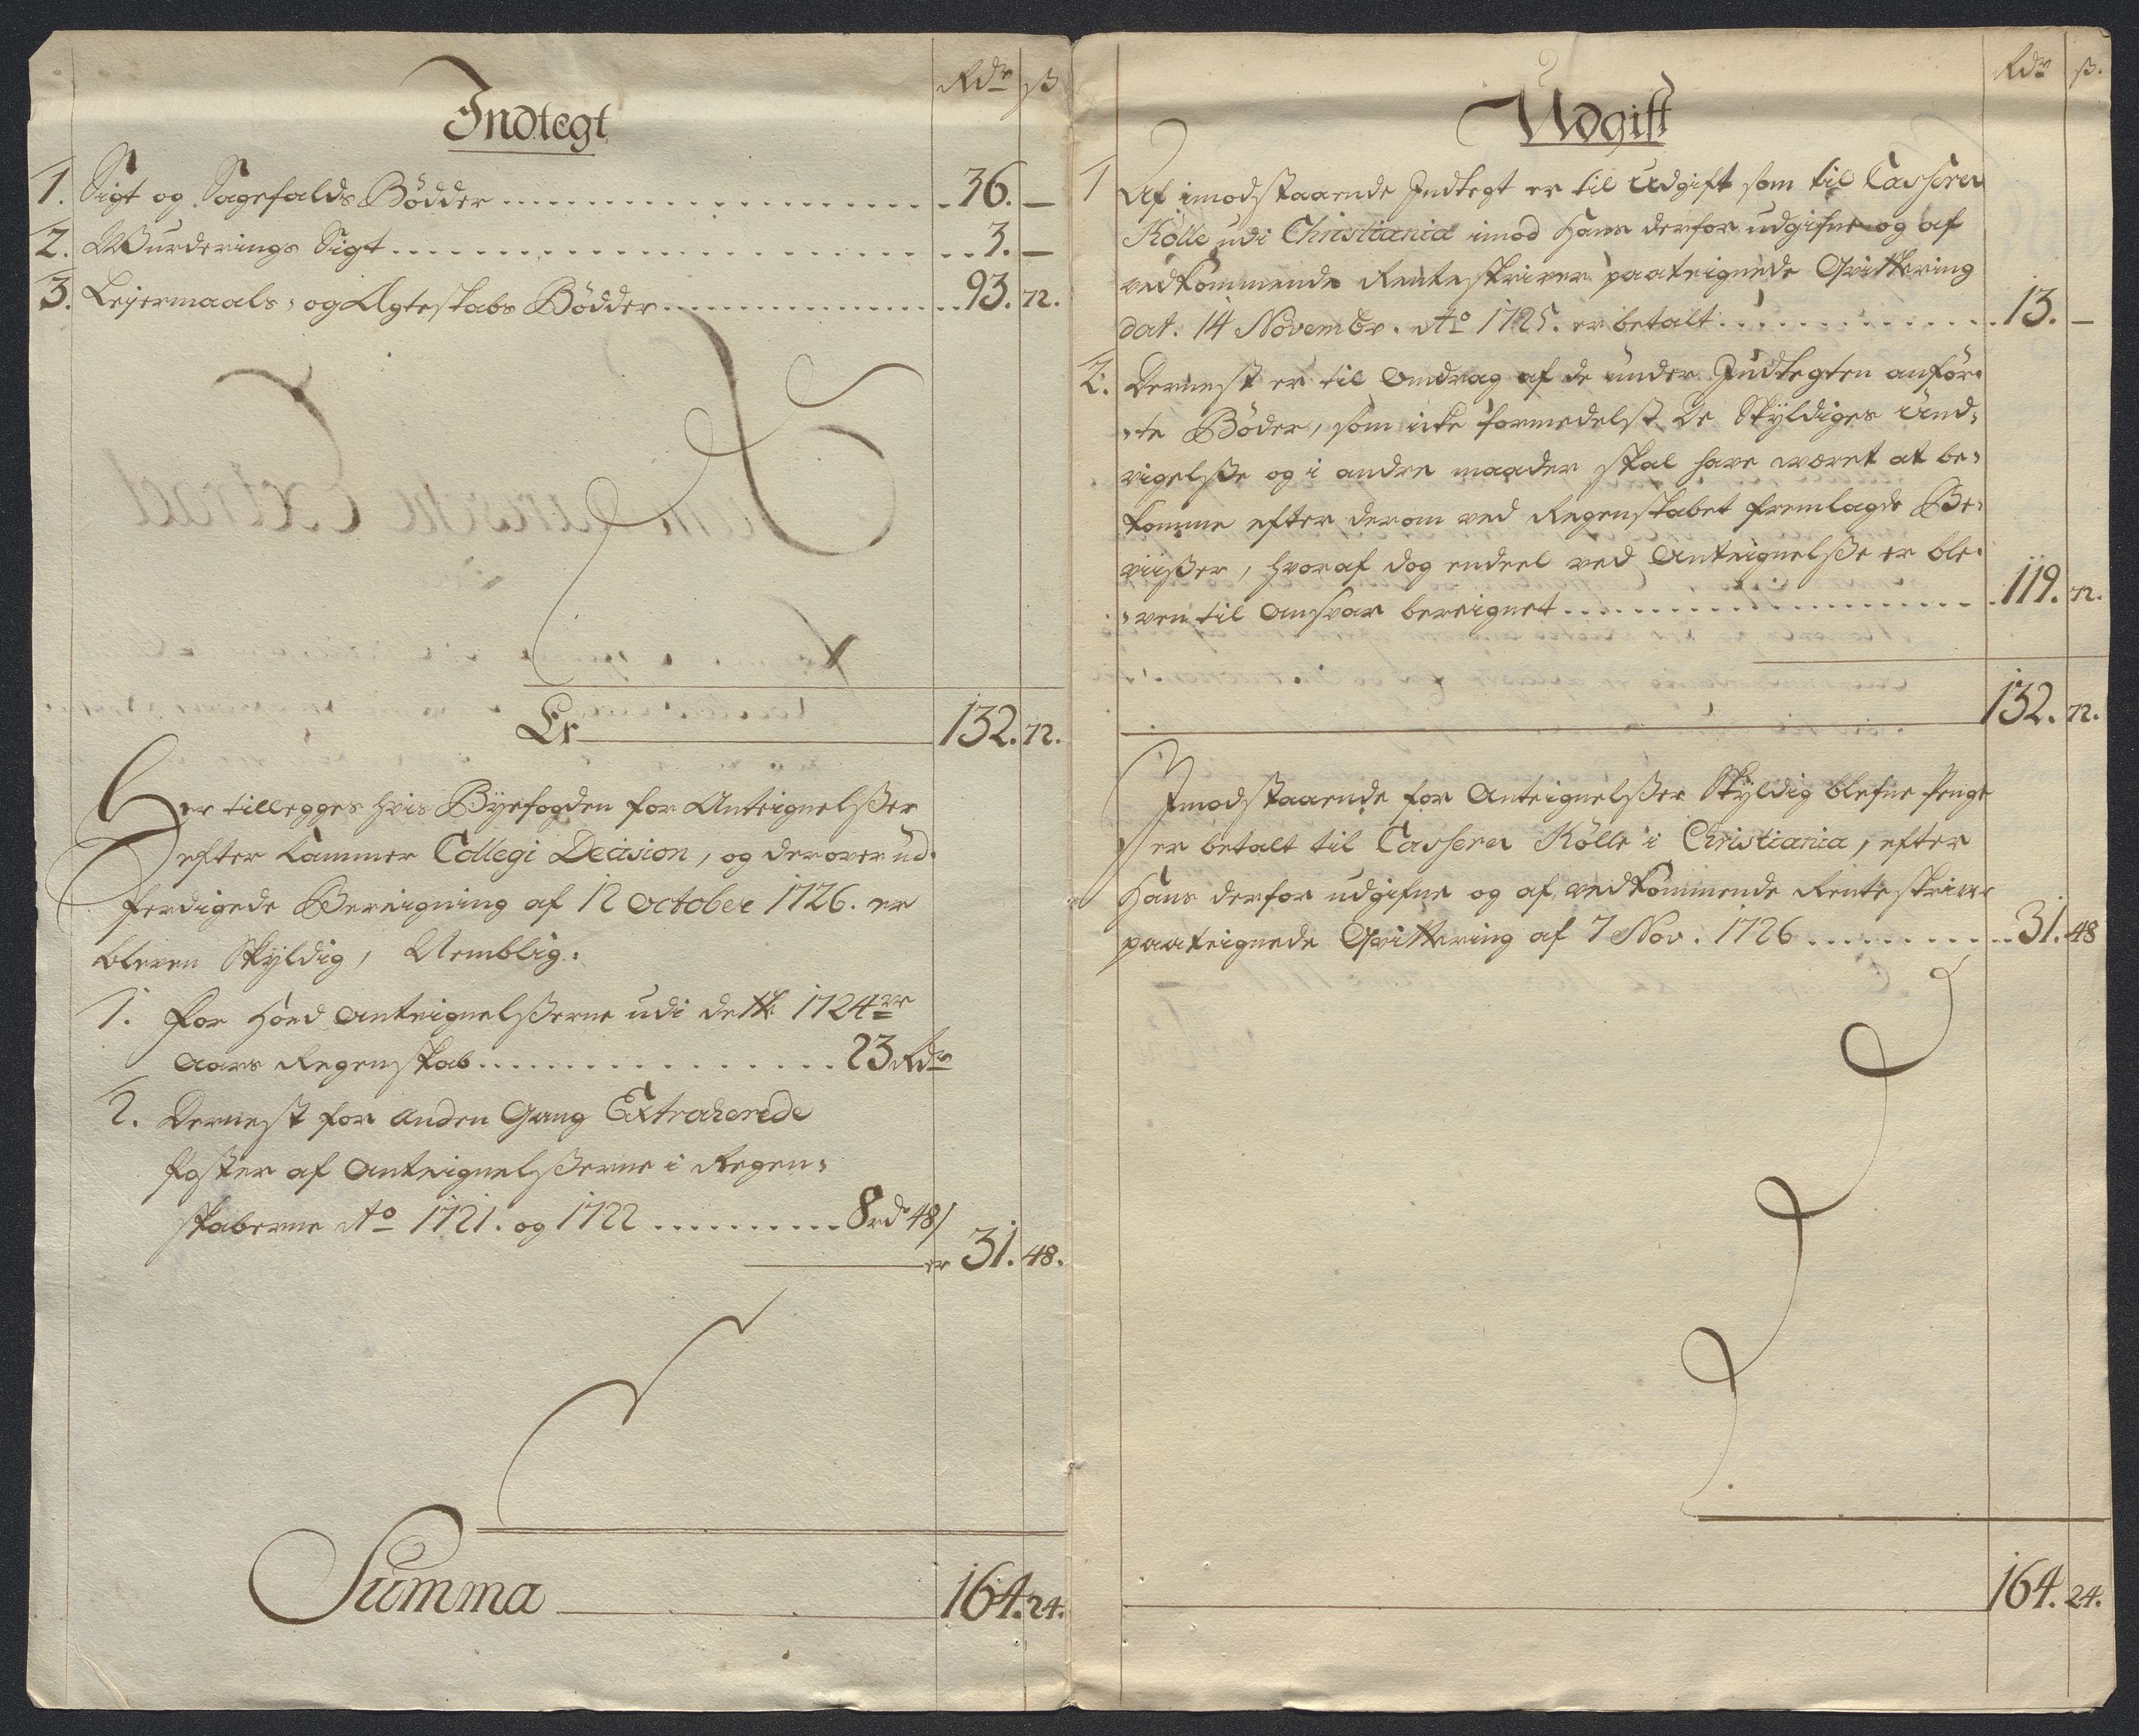 Rdr ß
Indtegt
1. Sigt og Sagefalds Bödder 36. —
2. Wurderings Sigt 3. —
3. Leiermaals- og Ægteskabs Bödder 93. 72.
Er 132. 72.
Her tillegges hvis Byefogden for Anteignelßer
efter Cammer Collegi Decision, og derover ud-
ferdigede Bereigning af 12 October 1726. er
bleven Skÿldig, Nemblig.
1. For Hoed Anteignelßerne udi dette 1724de
Aars Regenskab 23 Rdr
2. Dernest for anden Gang Extraherede
Poster af Anteignelßerne i Regen-
skaberne Ao 1721. og 1722 8 rd 48ß
er 31. 48.
Summa 164. 24.
Rdr ß.
Udgift
1 Af imodstaaende Indtegt er til Udgift som til Casserer
Kölle udi Christiania imod Hans derfor udgifne og af
vedkommende Renteskriver paateignede Qvittering
dat. 14 Novembr. Ao 1725. er betalt 13. —
2. Dernest er til Omdrag af de under Indtegten anför-
-te Böder, som icke formedelst De Skÿldiges Und-
vigelße og i andre maader skal have været at be-
komme efter derom ved Regenskabet fremlagde Be-
viißer, hvoraf dog endeel ved Anteignelße er ble-
-ven til Ansvar bereignet 119. 72.
132. 72.
Imodstaaende for Anteignelßer Skÿldig blefne Penge
er betalt til Casserer Kölle i Christiania, efter
Hans derfor udgifne og af vedkommende Renteskriver
paateignede Qvittering af 7 Nov. 1726 31. 48
164. 24.